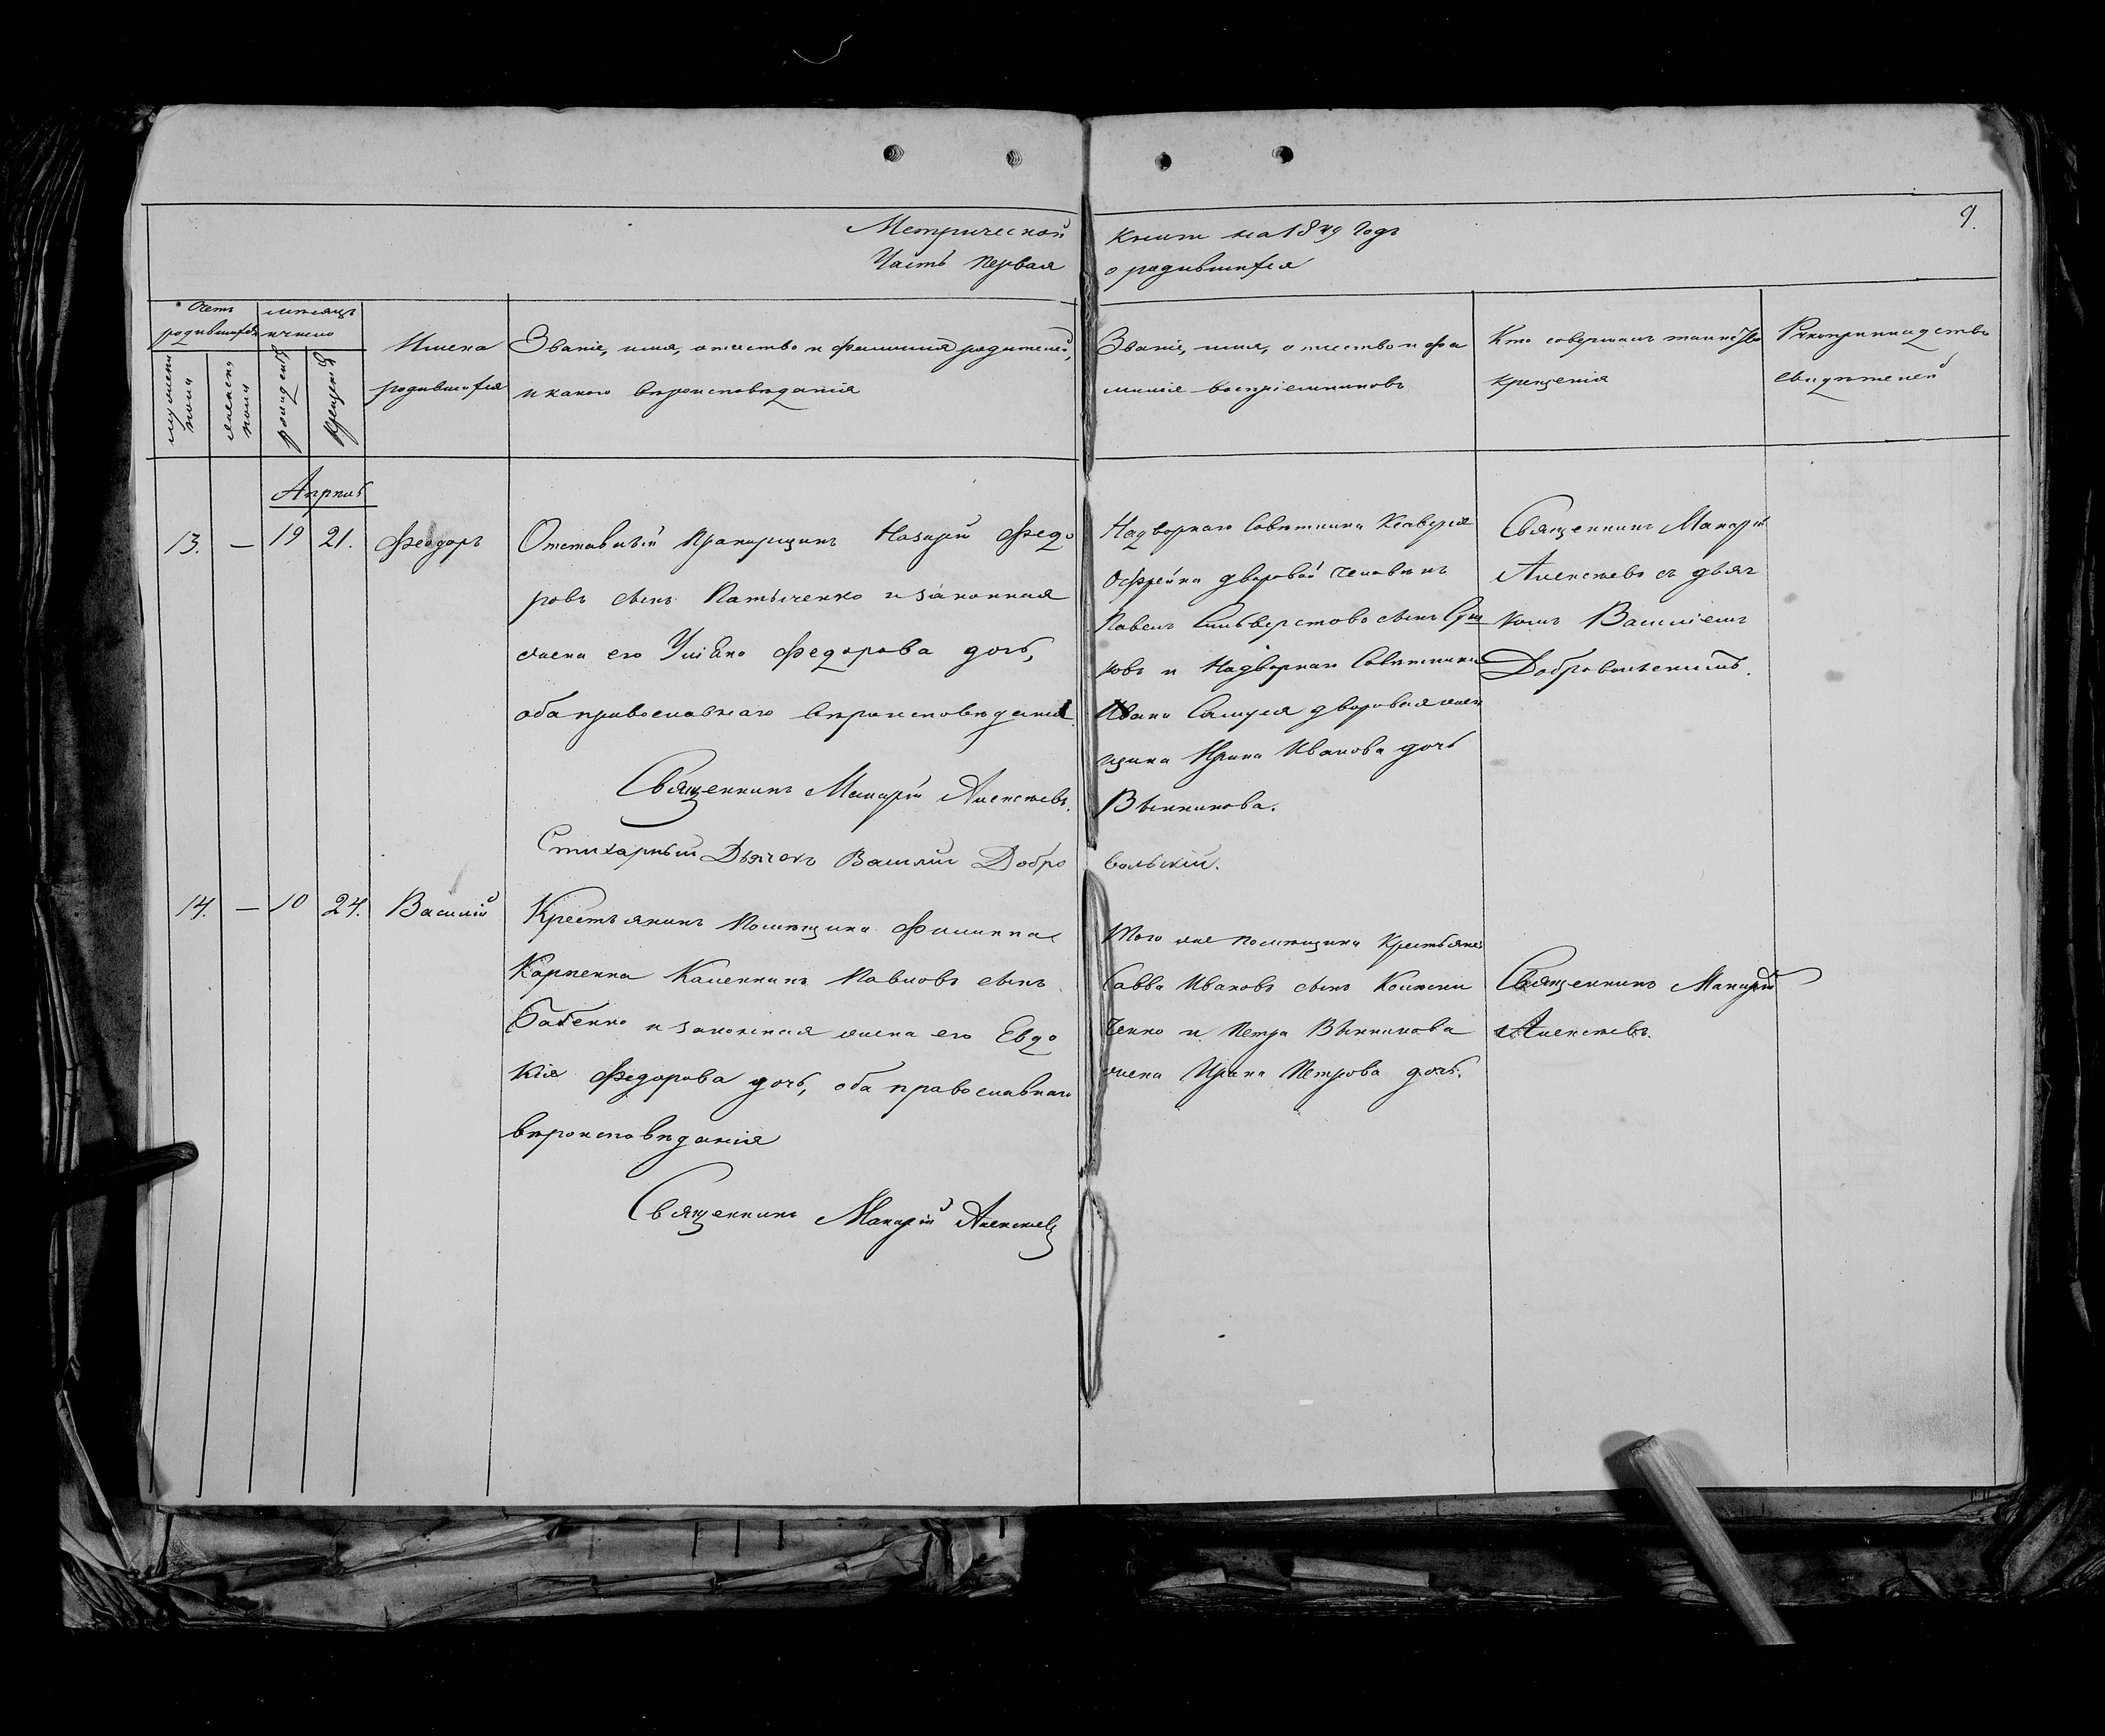 Метрической книги на 1849 годъ
9.
Часть первая о родившихся
Счетъ родившихся
мѣсяцъ и число
мужеска пола
женска пола
рожденія
крещенія
Имена родившихся
Званіе, имя, отчество и фамилія родителей,
и какого вѣроисповѣданія
Званіе, имя, отчество и фа
милія воспріемниковъ
Кто совершалъ таинство
крещенія
Рукоприкладство
свидѣтелей
Апрѣль
13. — 19 21. Феодоръ
Отставный Прапорщикъ Назарій Федо
ровъ сынъ Патыченко и законная
жена его Уліана Федорова дочь,
оба православнаго вѣроисповѣданія.
Священникъ Макарій Алексѣевъ.
Стихарный Дьячекъ Василій Добро
вольскій.
Надворнаго Совѣтника Ксаверія
дворовой человѣкъ
Павелъ Сильверстовъ сынъ
ковъ и Надворнаго Совѣтника
Ивана дворовая жен
щина Ирина Иванова дочь
Вѣнникова.
Священникъ Макарій
Алексѣевъ съ дьяч
комъ Василіемъ
Добровольскимъ.
14. — 10 24. Василій
Крестьянинъ Помѣщика Филиппа
Карпенка Каленникъ Павловъ сынъ
Бабенко и законная жена его Евдо
кія Федорова дочь, оба православнаго
вѣроисповѣданія
Священникъ Макарій Алексѣевъ
Того же помѣщика Крестьянинъ
Савва Ивановъ сынъ
ченко и Петра Вѣнникова
жена Ирина Петрова дочь.
Священникъ Макарій
Алексѣевъ.